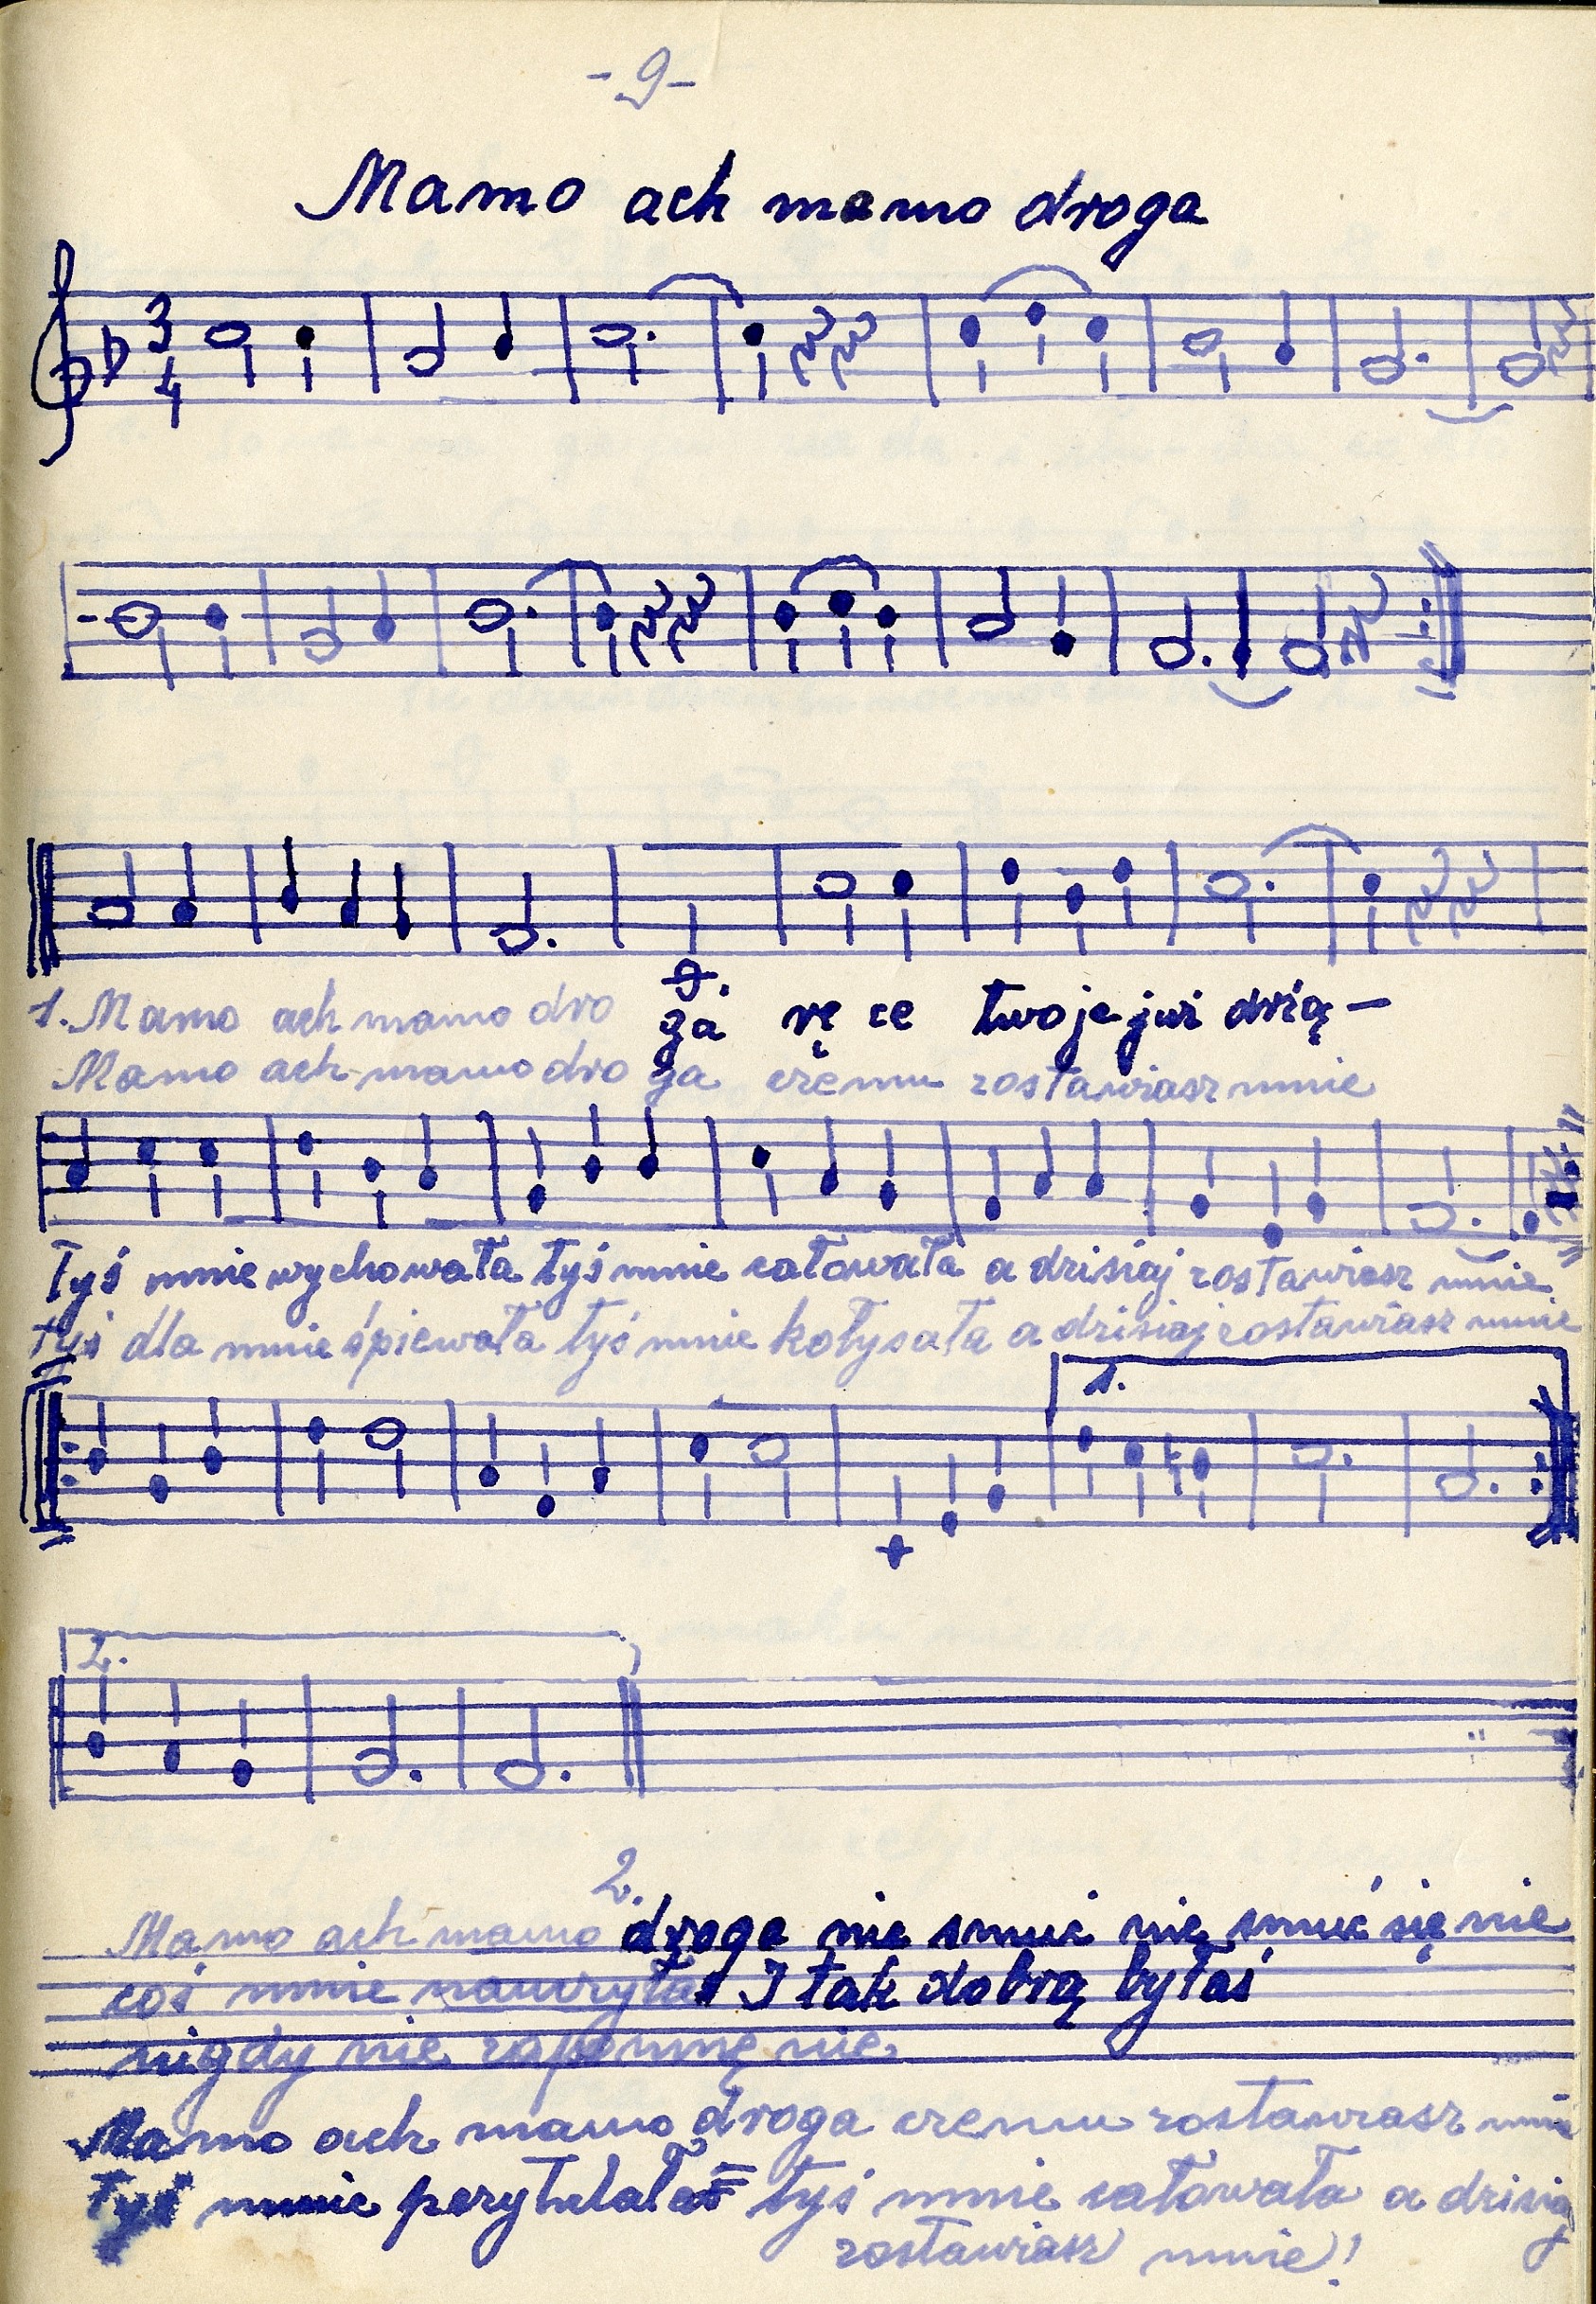 -9-
Mamo ach mamo droga
3
4
1. Mamo ach mamo dro ga rę ce twoje już drżą-
Mamo ach mamo dro ga czemu zostawiasz mnie
Tyś mnie wychowała tyś mnie całowała a dzisiaj zostawiasz mnie
tyś dla mnie śpiewała tyś mnie kołysała a dzisiaj zostawiasz mnie
1.
2.
2.
Mamo ach mamo droga nie smuć nie smuć się nie
coś mnie nauczyła I tak dobrą byłaś
nigdy nie zapomnę nie
Mamo ach mamo droga czemu zostawiasz mnie
Tyś mnie przytulała tyś mnie całowała a dzisiaj
zostawiasz mnie!